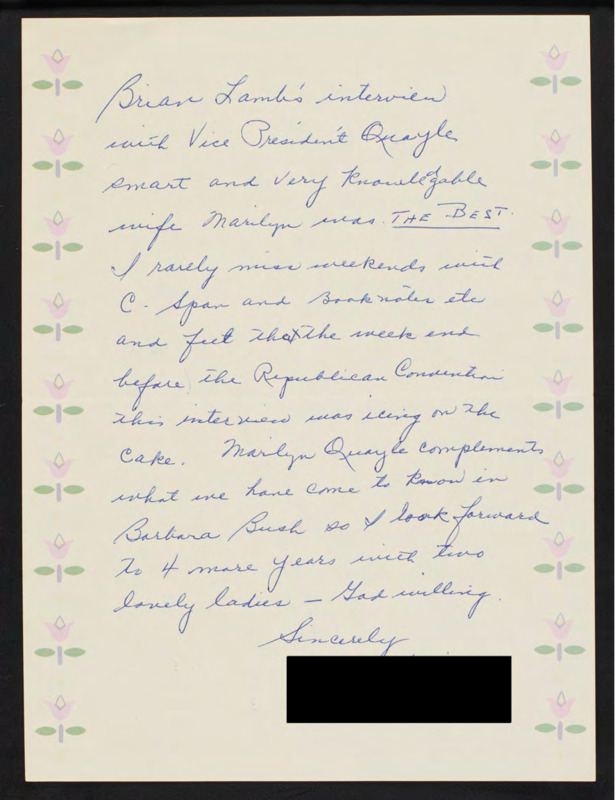 Brian Lamb's interview
with Vice President Quayle
smart and very knowledgable
wife Marilyn was THE BEST.
I rarely miss weekends with
C-Span and Booknotes etc
and felt that the week end
before the Republican Convention
this interview was icing on the
cake. Marilyn Quayle complements
what we have come to know in
Barbara Bush so I look forward
to 4 more years with two
lovely ladies – God willing.
Sincerely